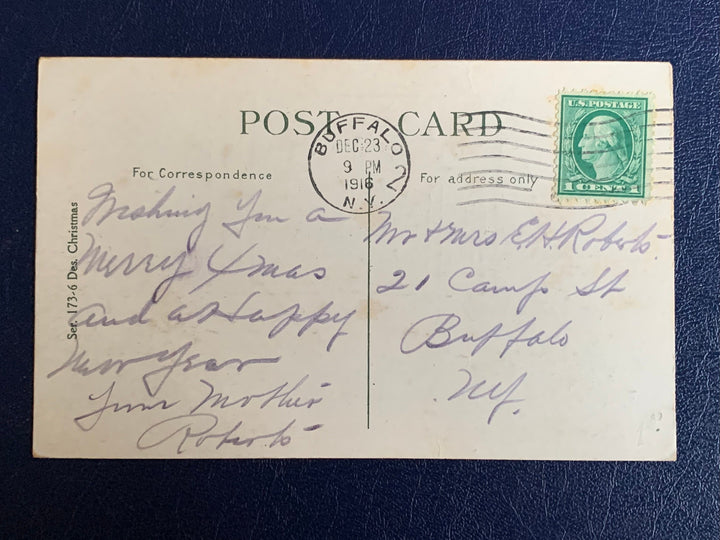 POST CARD
U.S. POSTAGE
1 CENT 1
BUFFALO
DEC 23
9 PM
1916
N.Y.
2
For Correspondence
For address only
Ser. 173-6 Des. Christmas
Wishing You a
Merry Xmas
and a Happy
New Year
from Mother
Roberts
Mr + Mrs E.H. Roberts
21 Camp St
Buffalo
NY.